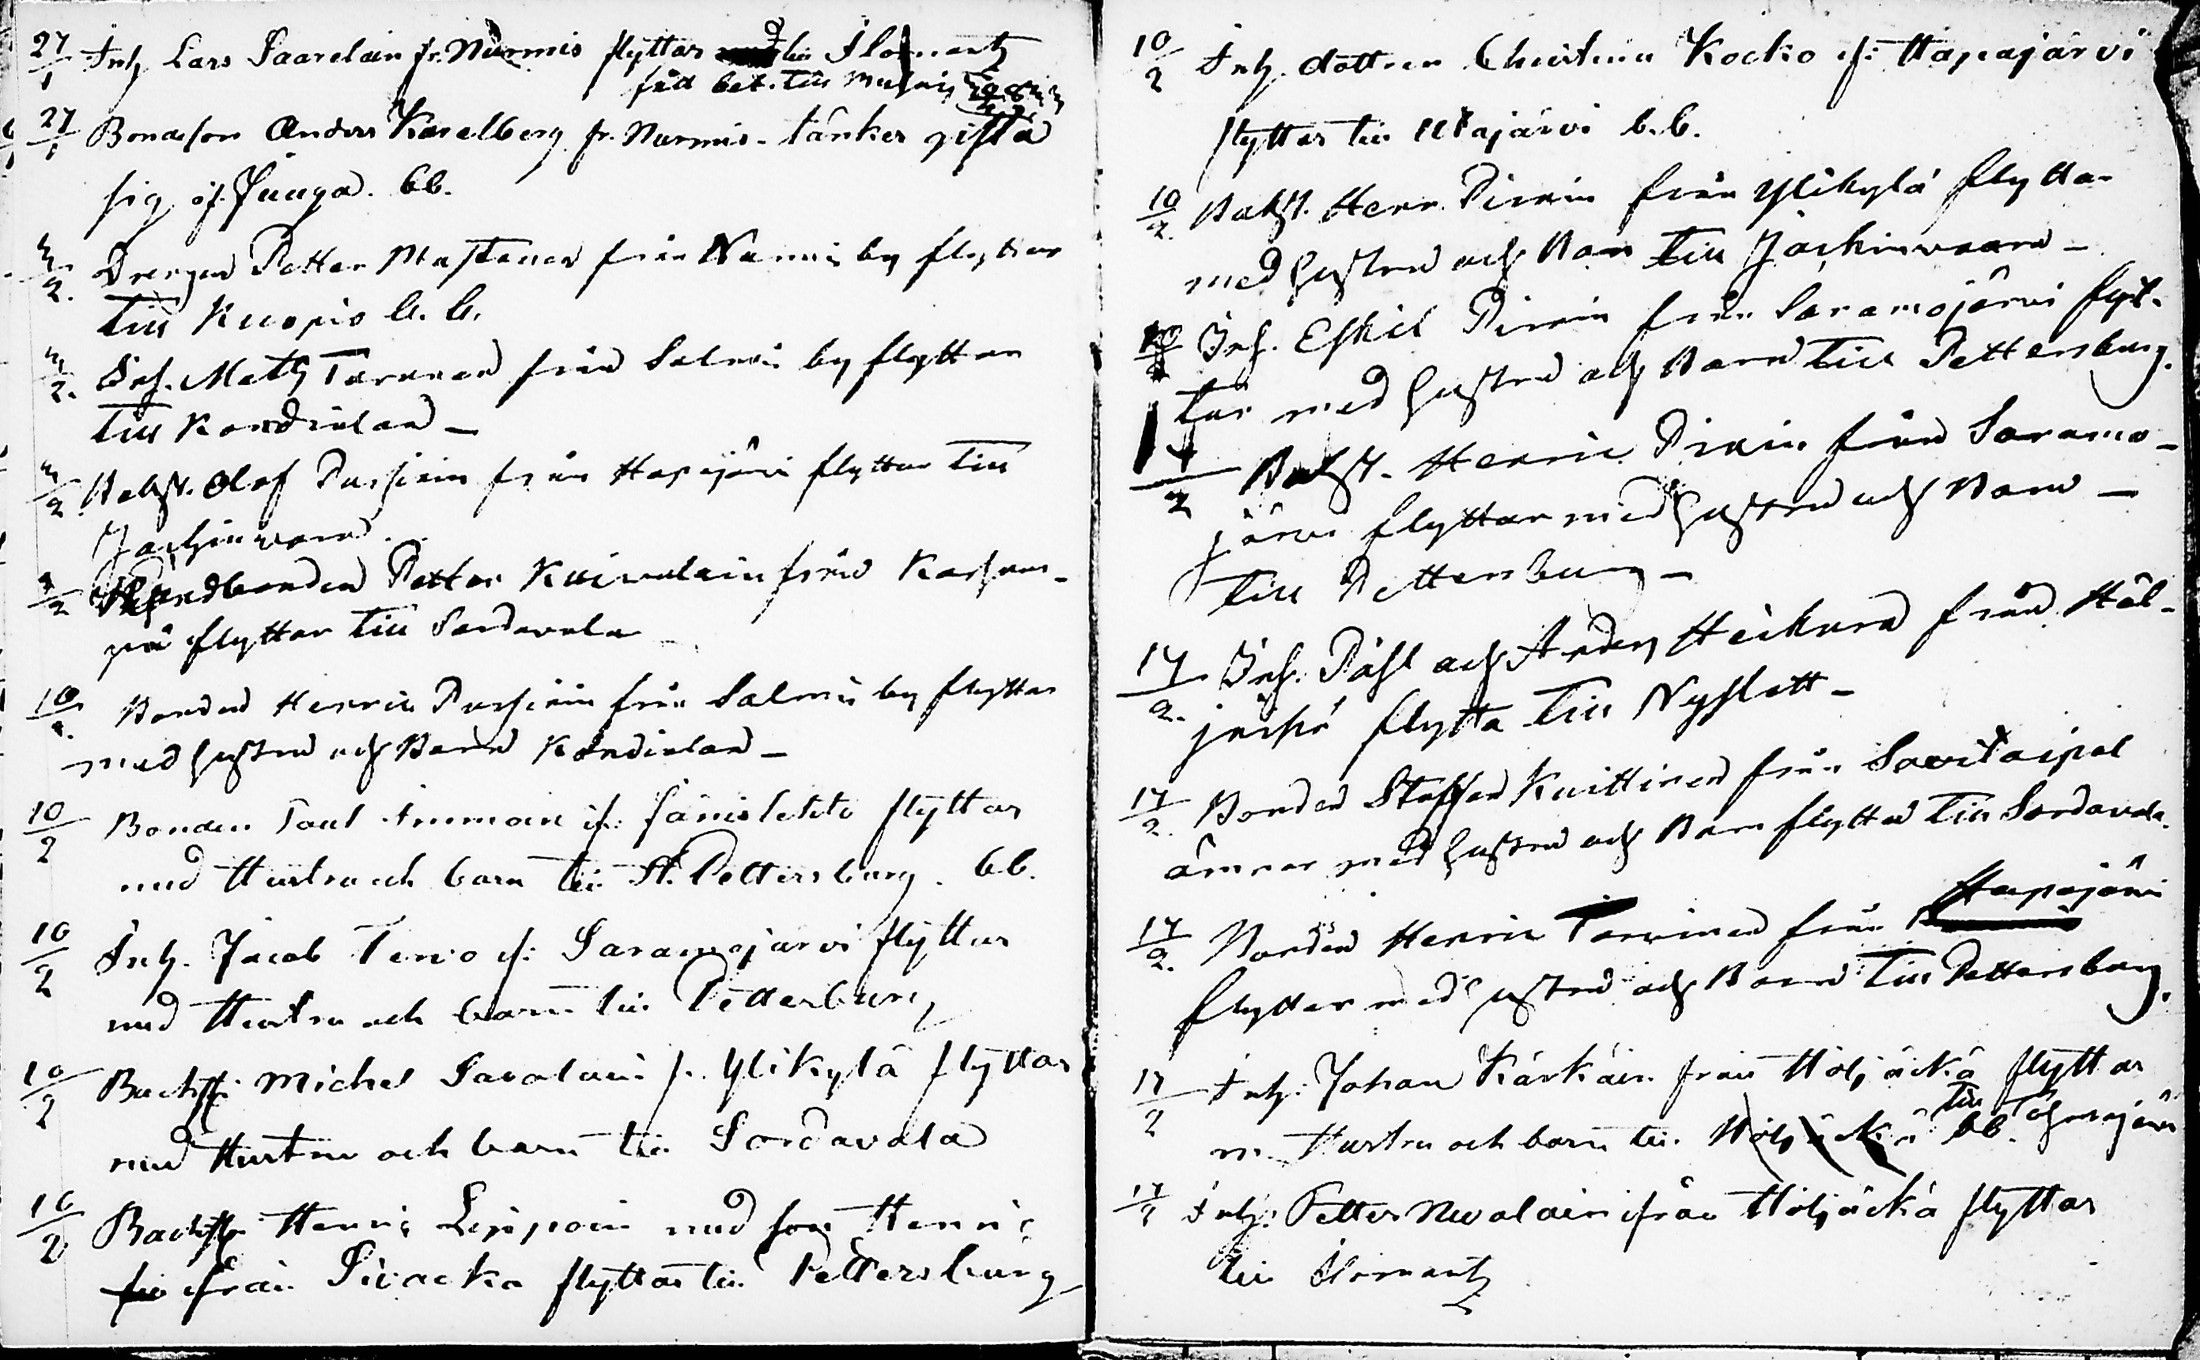 27/1 Inh. Lars Saarelain fr. Nurmis flyttar till Ilomantz
fåd bet. till
27/1 Bondeson Anders Karelberg fr. Nurmis - tänker gifta
sig i f. Juuga. bb.
3/2. Drengen Petter Mustonen från Nurmis by flyttar
till Kuopio b. b.
3/2. Inh. Math Tarvanen från Salmis by flyttar
till Kondielax -
3/2. Backst. Olof Pussinin från Hapajärvi flyttar till
Jackimvara.
3/2 Landbonden Petter Kuivalain från Karhun-
pä flyttar till Sordavala
10/2. Bonden Henric Pussinin från Salmis by flyttar
med hustru och Barn Kondielax -
10/2 Bonden Paul Immoin if: Jänislehto flyttar
med Hustru och barn till St. Pettersburg. bb.
10/2 Inh. Jacob Tervo if: Saramojärvi flyttar
med Hustru och barn till Petterburg
10/2 Backst: Michel Savolain fr. Ylikylä flyttar
med Hustru och barn till Sordavala
10/2 Backst: Henric Leppoin med son Henric
ifrån Sivacka flyttar till Pettersburg
10/2 Inh. dottren Christina Kocko if: Hapajärvi
flyttar till Utajärvi b.b.
10/2. Backst. Henr. Pirnin från Ylikylä flyttar
med hustru och Barn till Jackimvaara -
10/2 Inh. Eskil Pirnin från Saramojärvi flyt-
tar med hustru och Barn till Pettersburg.
17/2 Backst. Henric Pirnin från Saramo-
järvi flyttar med hustru och Barn -
till Pettersburg -
17/2. Inh. Påhl och Anders Heikura från Häl-
jäckä flytta till Nyslott -
17/2. Bonden Staffan Kuittinen från Savitaipal
ämnar med hustru och Barn flytta till Sordavala.
17/2. Bonden Henric Tarvinen från Hapajärvi
flyttar med hustru och Barn till Pettersburg.
17/2 Inh. Johan Kärkäin från Höljäckä flyttar
m. Hustru och barn till Höljäckä bb. till
17/2 Inh: Petter Nevalain ifrån Höljäckä flyttar
till Ilomantz